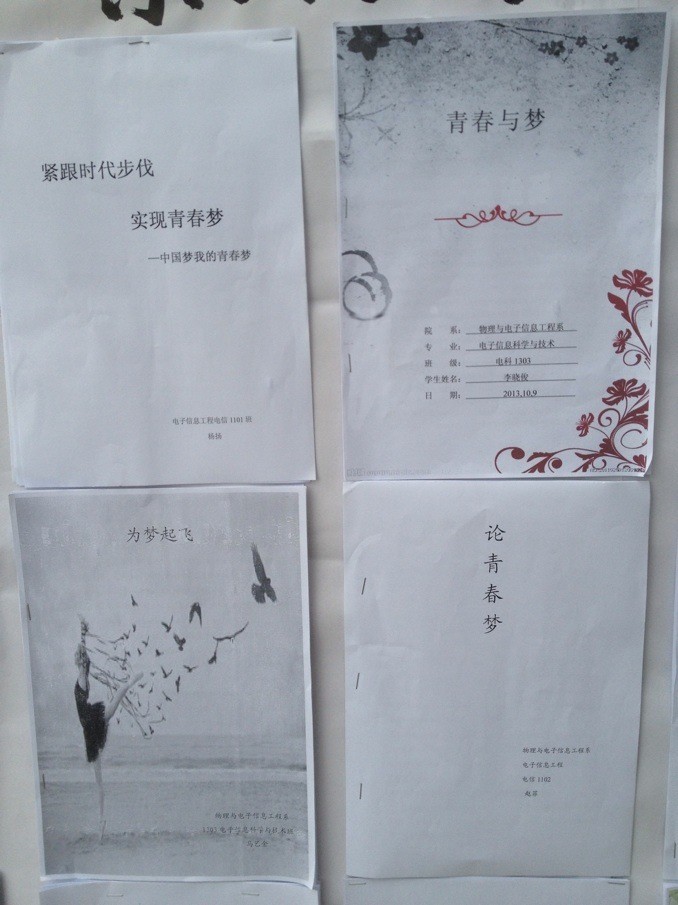 紧跟时代步伐
实现青春梦
—中国梦我的青春梦
电子信息工程电信1101班
杨扬
青春与梦
院 系： 物理与电子信息工程系
专 业： 电子信息科学与技术
班 级： 电科1303
学生姓名： 李晓俊
日 期： 2013,10,9
为梦起飞
物理与电子信息工程系
论青春梦
物理与电子信息工程系
电子信息工程
电信1102